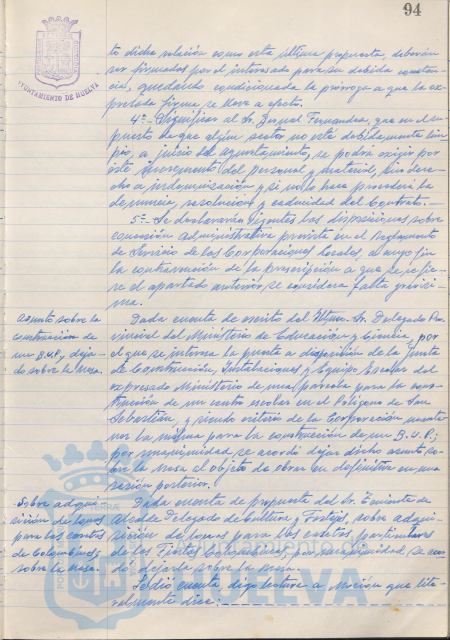 94
AYUNTAMIENTO DE HUELVA
to dicha relación como esta última propuesta, deberán
ser firmadas por el interesado para su debida constan-
cia, quedando condicionada la prórroga a que la ex-
presada firma se lleve a efecto.
4º.- Significar al Sr. Fernández, que en el su-
puesto de que algún sector no esté debidamente lim-
pio, a juicio del Ayuntamiento, se podrá exigir por
éste incremento del personal y material, sin dere-
cho a indemnización y si no lo hace procederá la
denuncia, resolución y caducidad del Contrato.-
5º.- Se declararán vigentes las disposiciones sobre
concesión administrativa prevista en el Reglamento
de Servicio de las Corporaciones Locales, a cuyo fin
la contravención de la prescripción a que se refie-
re el apartado anterior se considera falta gravísi-
ma.
Asunto sobre la
construcción de
un B.U.P., deja-
do sobre la Mesa.
Dada cuenta de escrito del Iltmo. Sr. Delegado Pro-
vincial del Ministerio de Educación y Ciencia, por
el que se interesa la puesta a disposición de la Junta
de Construcción, Instalaciones y Equipo Escolar del
expresado Ministerio de una parcela para la cons-
trucción de un centro escolar en el Polígono de San
Sebastián, y siendo criterio de la Corporación
la misma para la construcción de un B.U.P.;
por unanimidad, se acordó dejar dicho asunto so-
bre la Mesa al objeto de obrar en definitiva en una
sesión posterior.
Sobre adqui-
sición de
para las casetas
de Colombinas,
sobre la Mesa.
Dada cuenta de propuesta del Sr. Teniente de
Alcalde Delegado de Cultura y Festejos, sobre adqui-
sición de para las casetas particulares
de las Fiestas Colombinas, por unanimidad se acor-
dó dejarla sobre la Mesa.
Se dió cuenta digo lectura a Moción que lite-
ralmente dice:
HUELVA